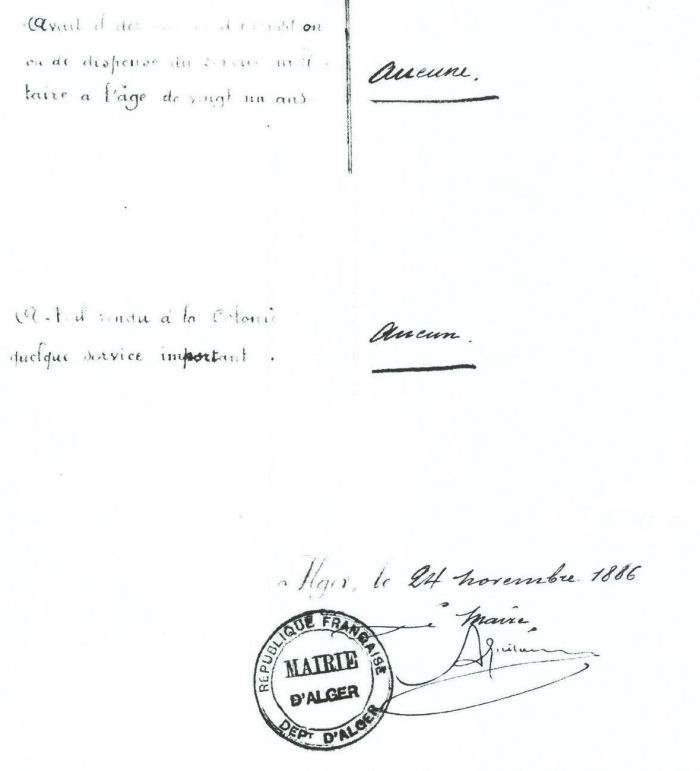 Avait il des
ou de dispense du service mili
taire a l'âge de vingt un ans
Aucune.
A-t-il rendu à la Colonie
quelque service important .
Aucun.
Alger, le 24 novembre 1886
Maire,
RÉPUBLIQUE FRANÇAISE
MAIRIE
D'ALGER
DEPT D'ALGER